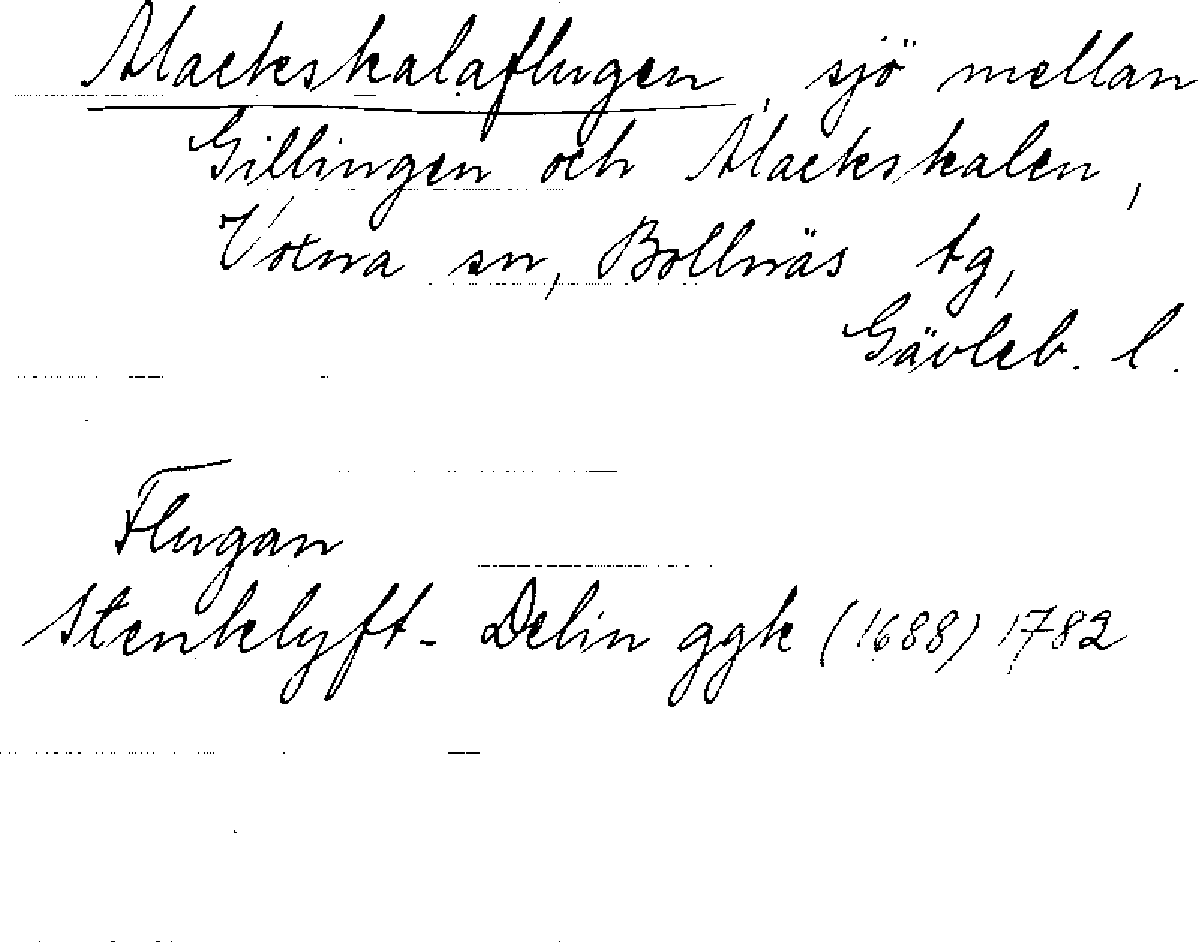 Mackskalaflugen, sjö mellan
Gillingen och Mackskalen,
Voxna sn, Bollnäs tg,
Gävleb. l.
Flugan
Stenklyft- Delin ggk (1688) 1782